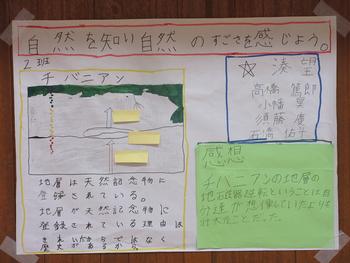 自然を知り自然のすごさを感じよう。
2班
チバニアン
地層は天然記念物に
登録されている。
地層が天然記念物に
登録されている理由は
きれいだからではなく
歴史があるから
☆湊 望
高橋 篤郎
小幡 昊
須藤 慶
石橋 佑子
感想
チバニアンの地層の
地磁器逆転ということは自
分達が想像していたよりも
壮大だった。